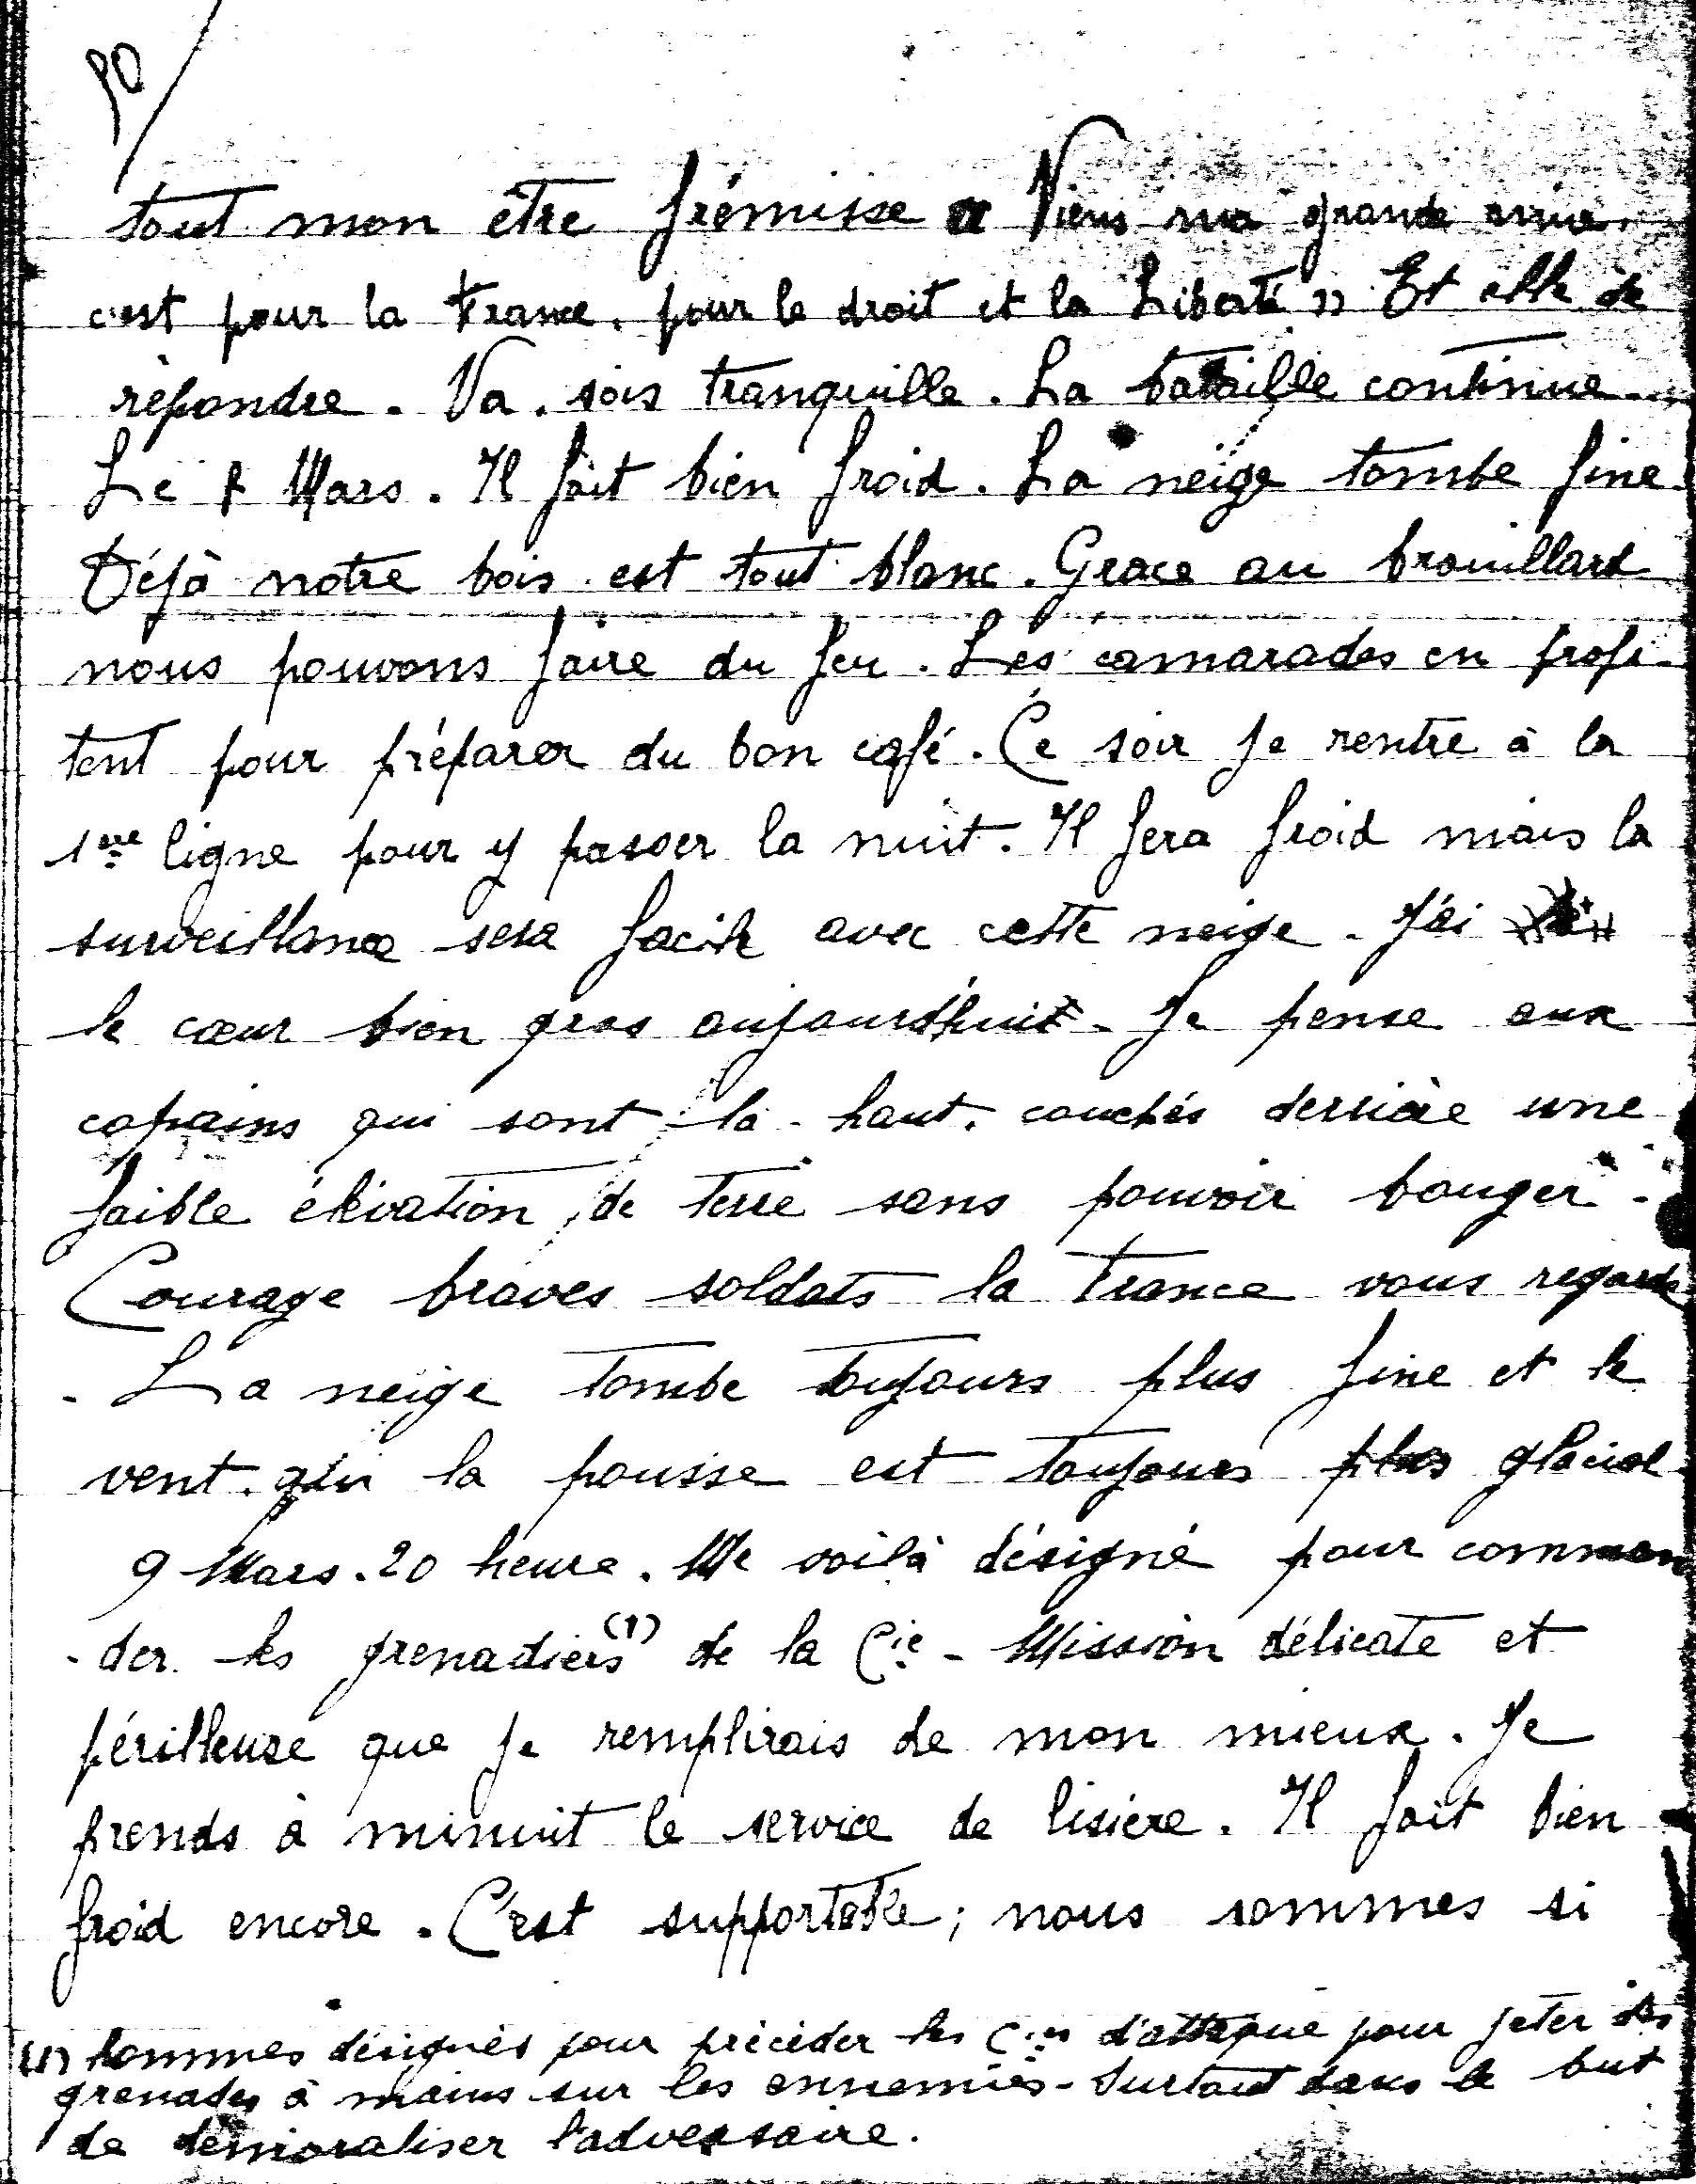 tout mon être frémisse « Viens ma grande amie,
c'est pour la France, pour le droit et la Liberté » Et elle de
répondre. Va, sois tranquille. La bataille continue.
Le 8 Mars. Il fait bien froid. La neige tombe fine.
Déjà notre bois est tout blanc. Grace au brouillard
nous pouvons faire du feu. Les camarades en profi-
tent pour préparer du bon café. Ce soir je rentre à la
1ère ligne pour y passer la nuit. Il fera froid mais la
surveillance sera facile avec cette neige. J'ai
le cœur bien gros aujourd'hui. Je pense aux
copains qui sont là-haut, couchés derrière une
faible élévation de terre sans pouvoir bouger.
Courage braves soldats la France vous regarde
. La neige tombe toujours plus fine et le
vent qui la pousse est toujours plus glacial.
9 Mars. 20 heure. Me voilà désigné pour comman
-der les grenadiers (1) de la Cie - Mission délicate et
périlleuse que je remplirais de mon mieux. Je
prends à minuit le service de lisière. Il fait bien
froid encore. C'est supportable; nous sommes si
(1) hommes désignés pour précéder les Cies d'attaque pour jeter des
grenades à mains sur les ennemies - Surtout dans le but
de démoraliser l'adversaire.